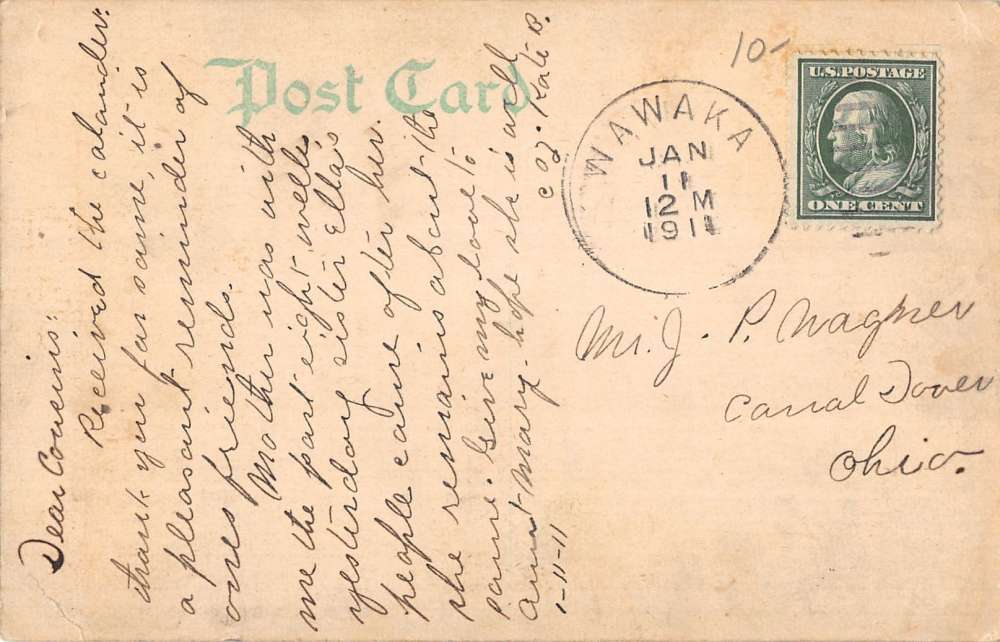 Post Card
10-
U.S. POSTAGE
ONE CENT
WAWAKA
JAN
11
12 M
1911
Mr. J. P. Wagner
Canal Dover
Ohio.
Dear Cousins:
Received the calander.
thank you for same, it is
a pleasant reminder of
ones friends.
Mother was with
me the past eight wells
yesterday sister Ella's
people came after her.
she remains about the
same. Give my love to
aunt Mary. hope she is well
Coz. Kate B.
1-11-11